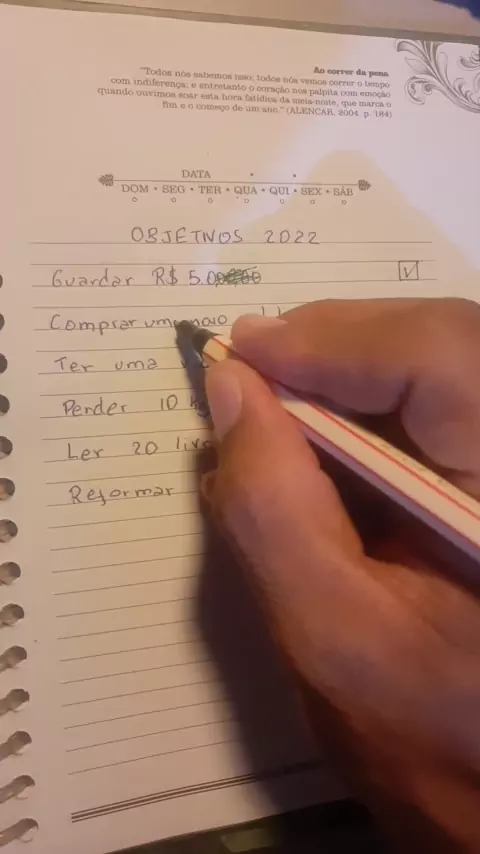 Ao correr da pena
"Todos nós sabemos isso; todos nós vemos correr o tempo
com indiferença; e entretanto o coração nos palpita com emoção
quando ouvimos soar esta hora fatídica da meia-noite, que marca o
fim e o começo de um ano." (ALENCAR, 2004. p. 184)
DATA
DOM • SEG • TER • QUA • QUI • SEX • SÁB
OBJETIVOS 2022
Guardar R$ 5.0
Comprar um
Ter uma
Perder 10 kg
Ler 20
Reformar